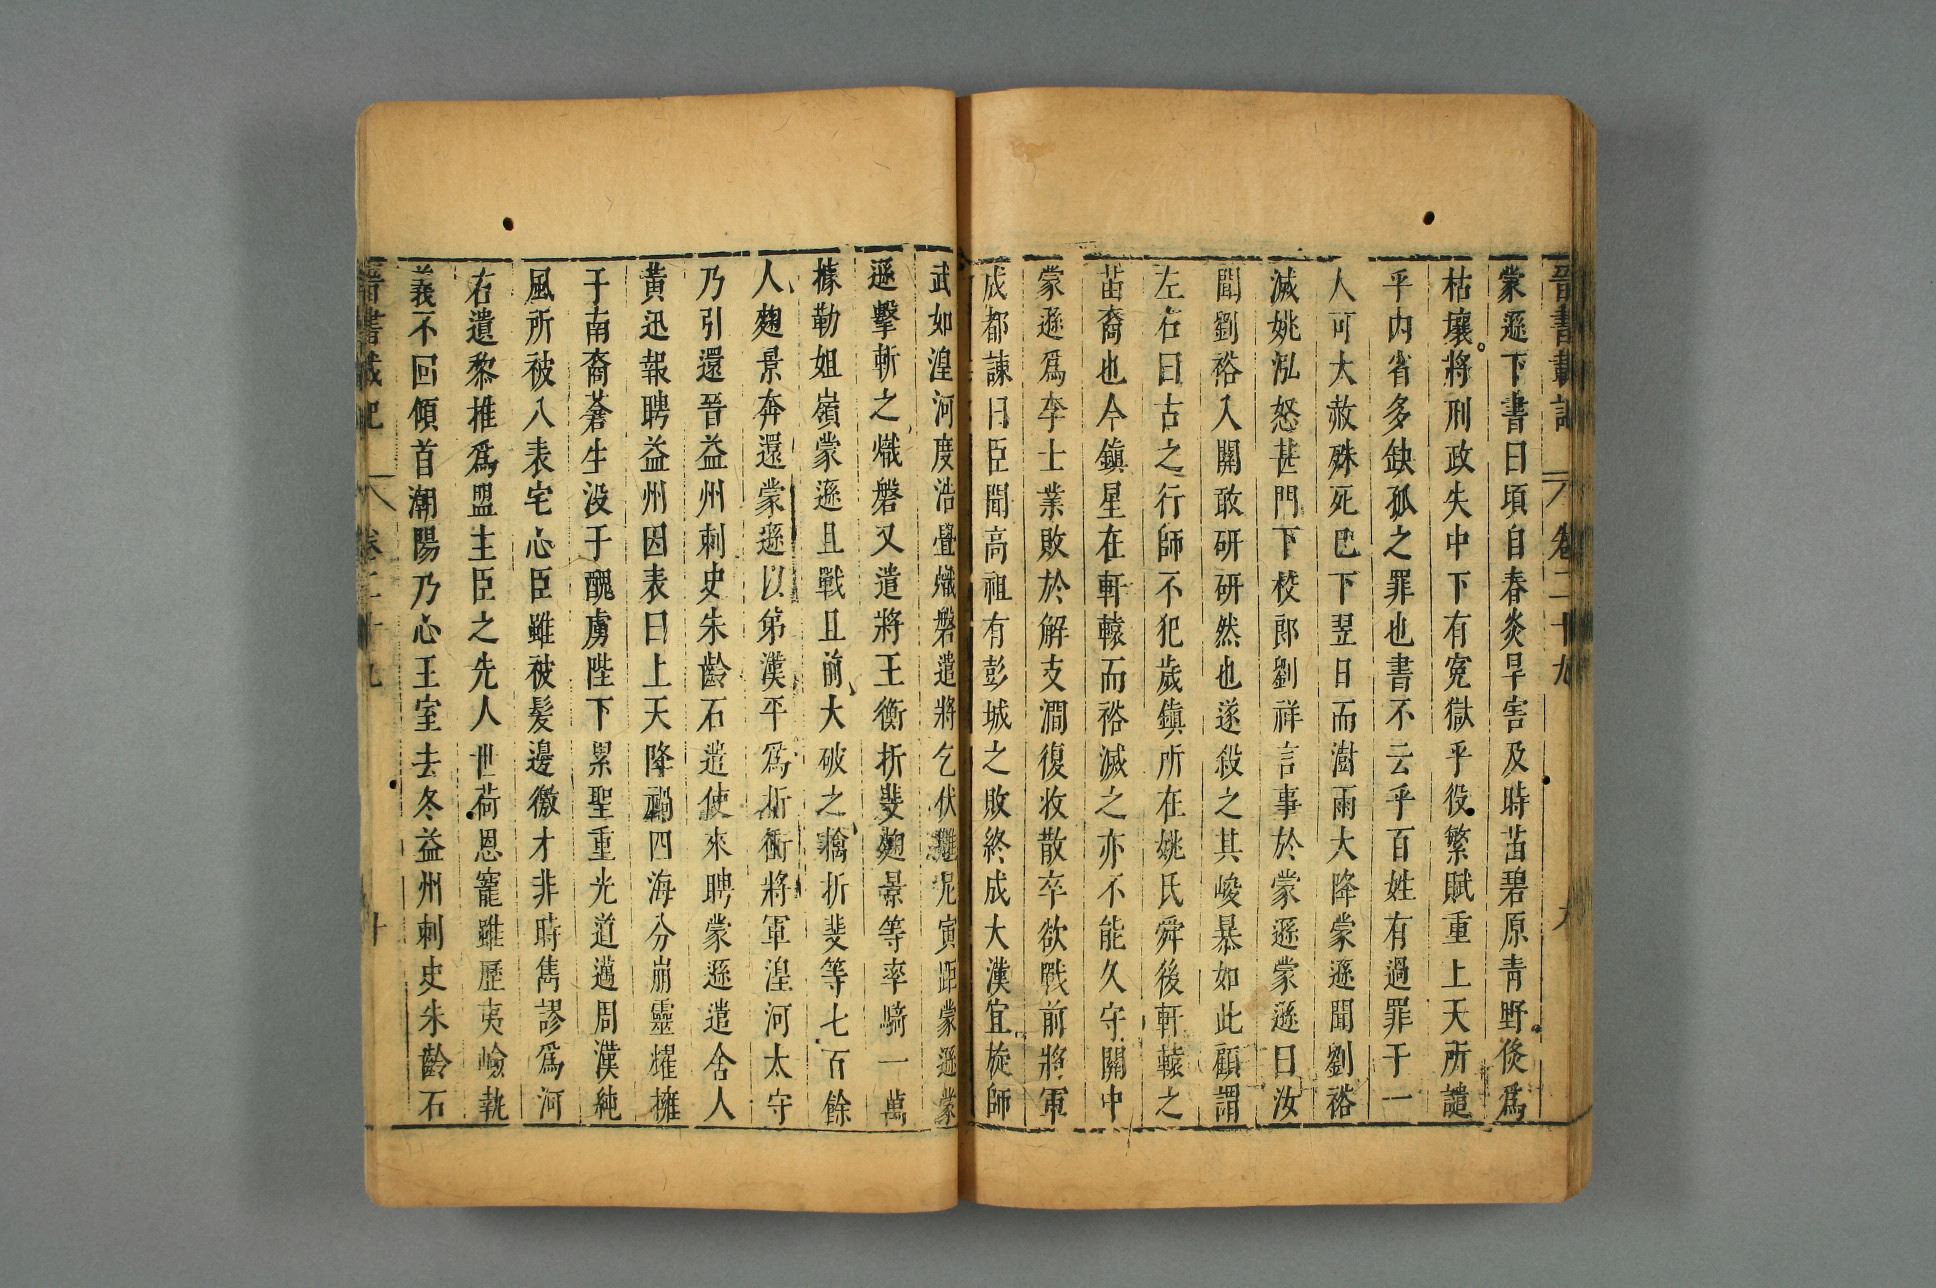 晉書載記 卷二十九 九
蒙遜下書曰頃自春炎旱害及時苗碧原青野倐爲
枯壤將刑政失中下有寃獄乎役繁賦重上天所譴
乎内省多缺孤之罪也書不云乎百姓有過罪于一
人可大赦殊死巳下翌日而澍雨大降蒙遜聞劉裕
滅姚泓怒甚門下校郎劉祥言事於蒙遜蒙遜曰汝
聞劉裕入關敢研研然也遂殺之其峻暴如此顧謂
左右曰古之行師不犯歲鎮所在姚氏舜後軒轅之
苗裔也今鎮星在軒轅而裕滅之亦不能久守關中
蒙遜爲李士業敗於解支澗復收散卒欲戰前將軍
成都諫曰臣聞高祖有彭城之敗終成大漢宜旋師
武如湟河度浩亹熾磐遣將乞伏魋尼寅距蒙遜蒙
遜擊斬之熾磐又遣將王衡折斐麴景等率騎一萬
據勒姐嶺蒙遜且戰且前大破之擒折斐等七百餘
人麴景奔還蒙遜以弟漢平爲折衝將軍湟河太守
乃引還晉益州刺史朱齡石遣使來聘蒙遜遣舍人
黄迅報聘益州因表曰上天降禍四海分崩靈耀擁
于南裔蒼生没于醜虜陛下累聖重光道邁周漢純
風所被八表宅心臣雖被髮邊徼才非時雋謬爲河
右遺黎推爲盟主臣之先人世荷恩寵雖歷夷嶮執
義不回傾首潮陽乃心王室去冬益州刺史朱齡石
晉書載記 卷二十九 十